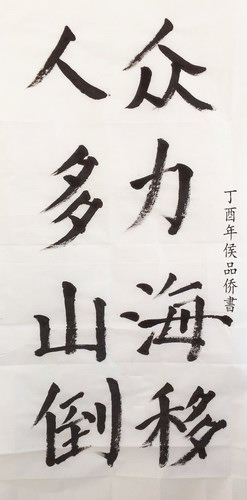 众力海移
人多山倒
丁酉年侯品侨書